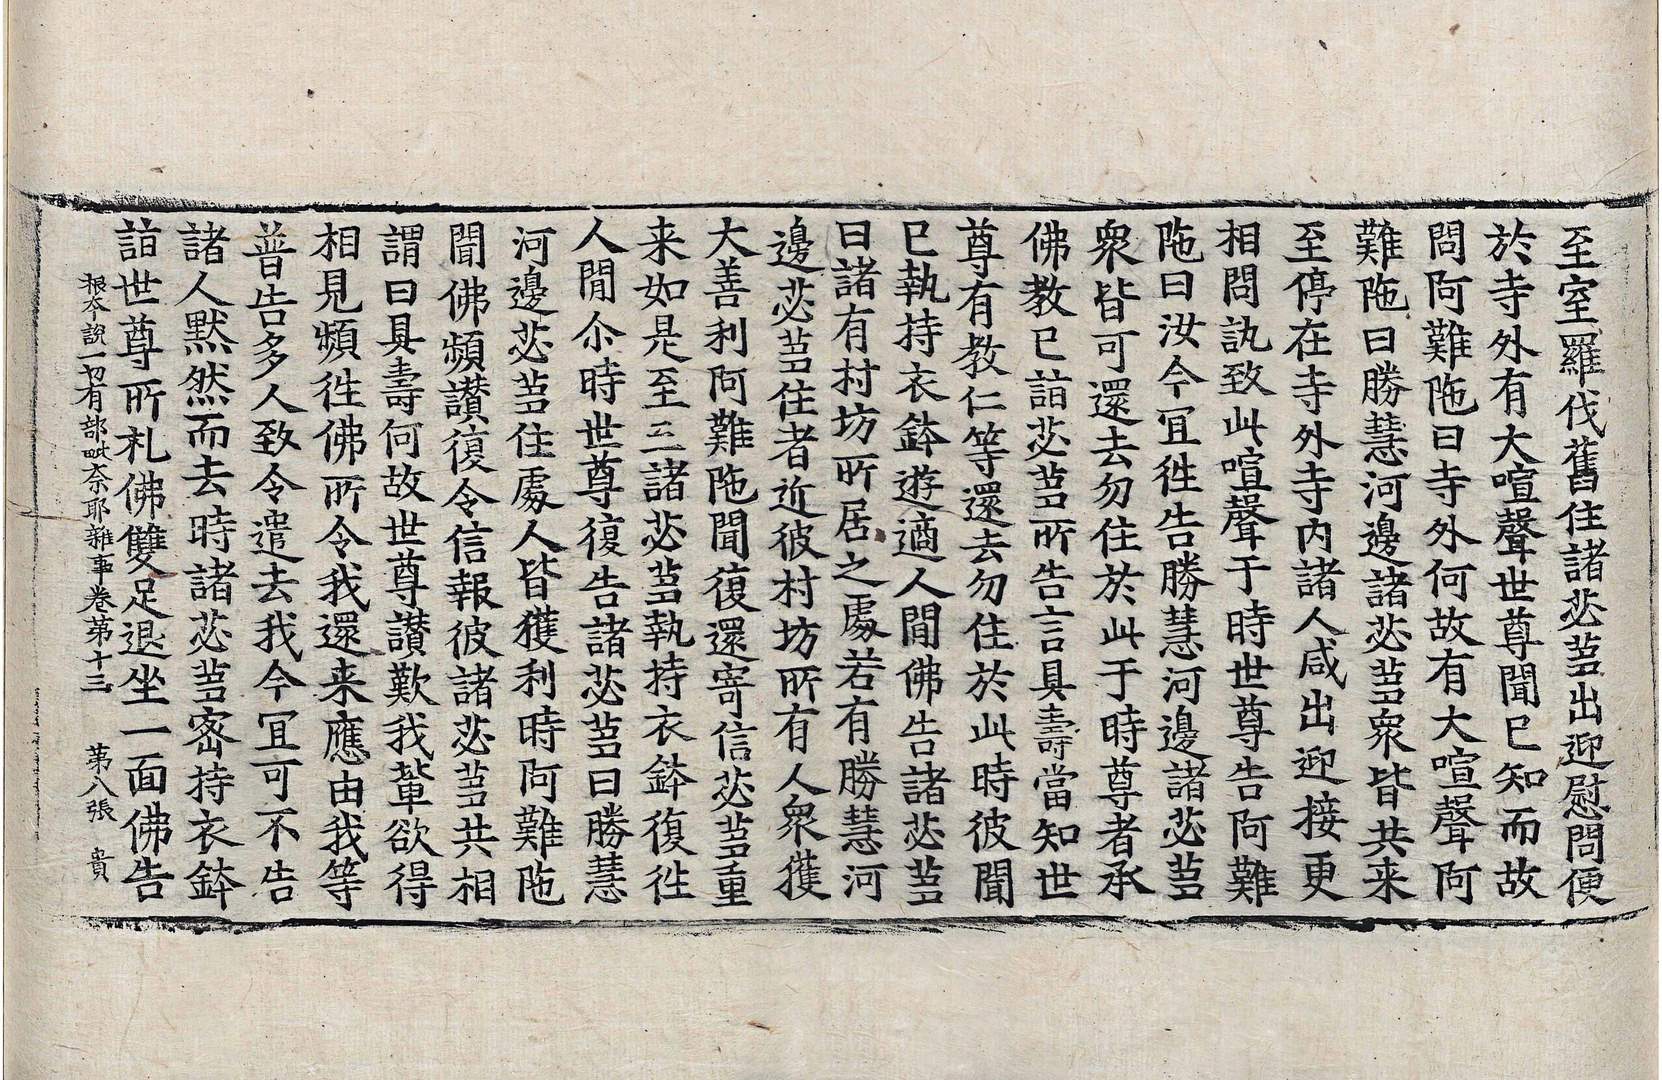 至室羅伐舊住諸苾芻出迎慰問便
於寺外有大喧聲世尊聞已知而故
問阿難陁曰寺外何故有大喧聲阿
難陁曰勝慧河邊諸苾芻衆皆共来
至停在寺外寺内諸人咸出迎接更
相問訊致此喧聲于時世尊告阿難
陁曰汝今冝徃告勝慧河邊諸苾芻
衆皆可還去勿住於此于時尊者承
佛教已詣苾芻所告言具壽當知世
尊有教仁等還去勿住於此時彼聞
已執持衣鉢遊適人間佛告諸苾芻
曰諸有村坊所居之處若有勝慧河
邊苾芻住者近彼村坊所有人衆獲
大善利阿難陁聞復還寄信苾芻重
来如是至三諸苾芻執持衣鉢復徃
人間尒時世尊復告諸苾芻曰勝慧
河邊苾芻住處人皆獲利時阿難陁
聞佛頻讃復令信報彼諸苾芻共相
謂曰具壽何故世尊讃歎我輩欲得
相見頻徃佛所令我還来應由我等
普告多人致令遣去我今冝可不告
諸人默然而去時諸苾芻密持衣鉢
詣世尊所礼佛雙足退坐一面佛告
根本說一切有部毗奈耶雜事卷第十三 第八張 貴